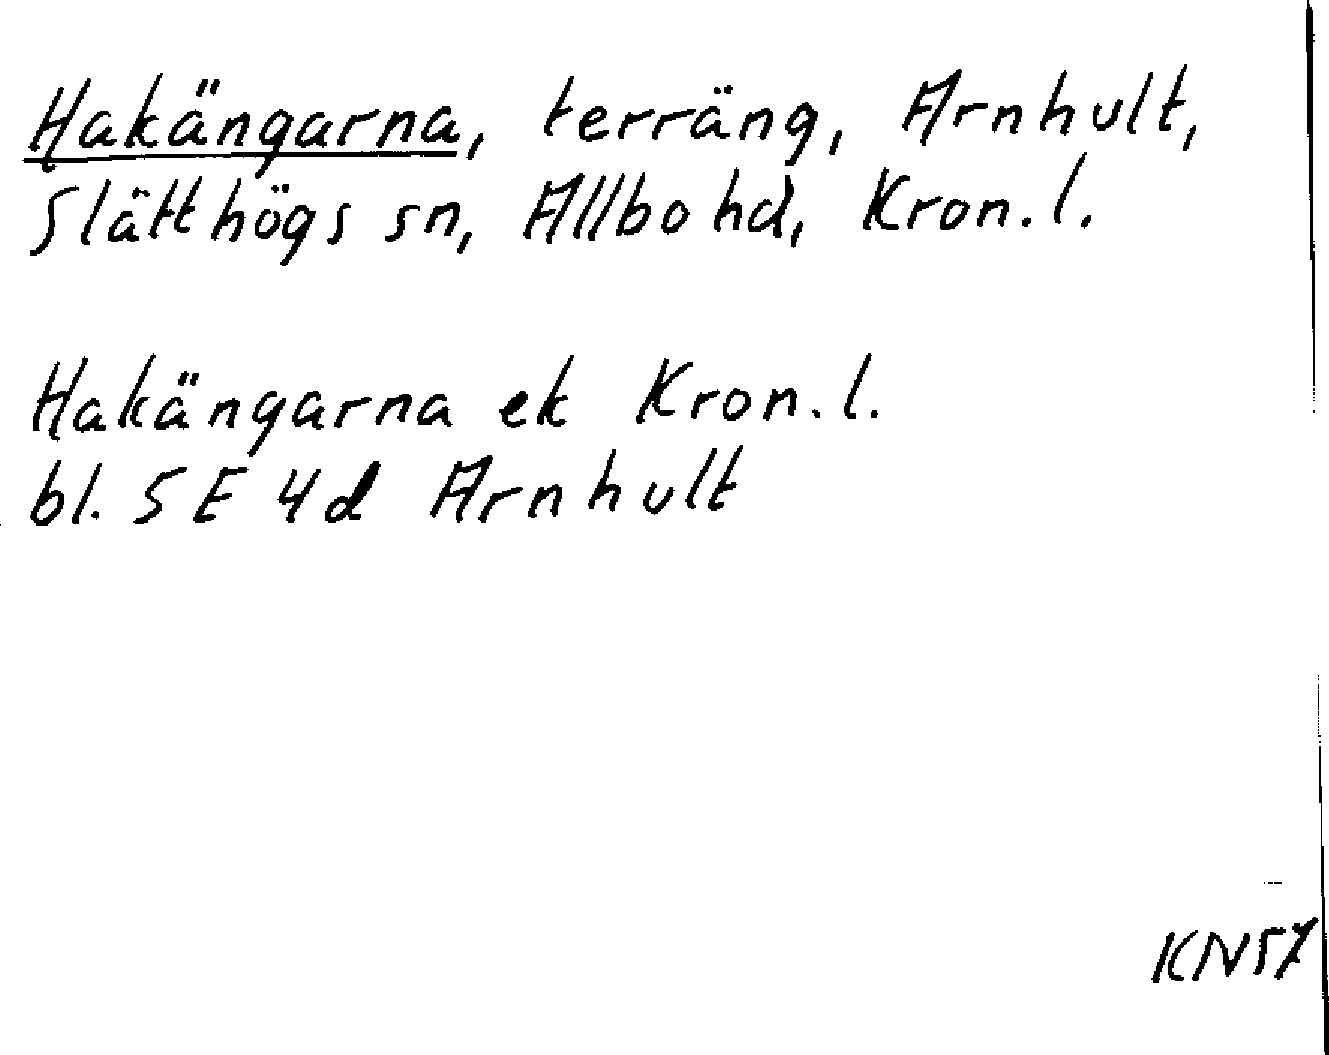 Hakängarna, terräng, Arnhult,
Slätthögs sn, Allbo hd, Kron. l.
Hakängarna ek Kron. l.
bl. 5 E 4d Arnhult
KN57